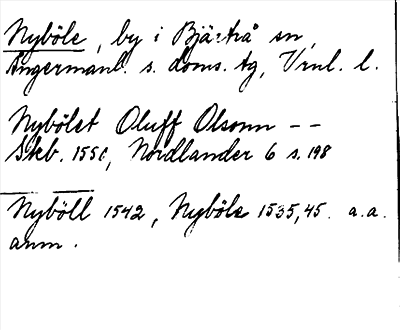 Nyböle, by i Bjärtrå sn,
Ångermanl. s. doms. tg, Vrnl. l.
Nybölet Oluff Olsonn – –
Skb. 1550, Nordlander 6 s. 198
Nyböll 1542, Nyböle 1535, 45. a.a.
anm.